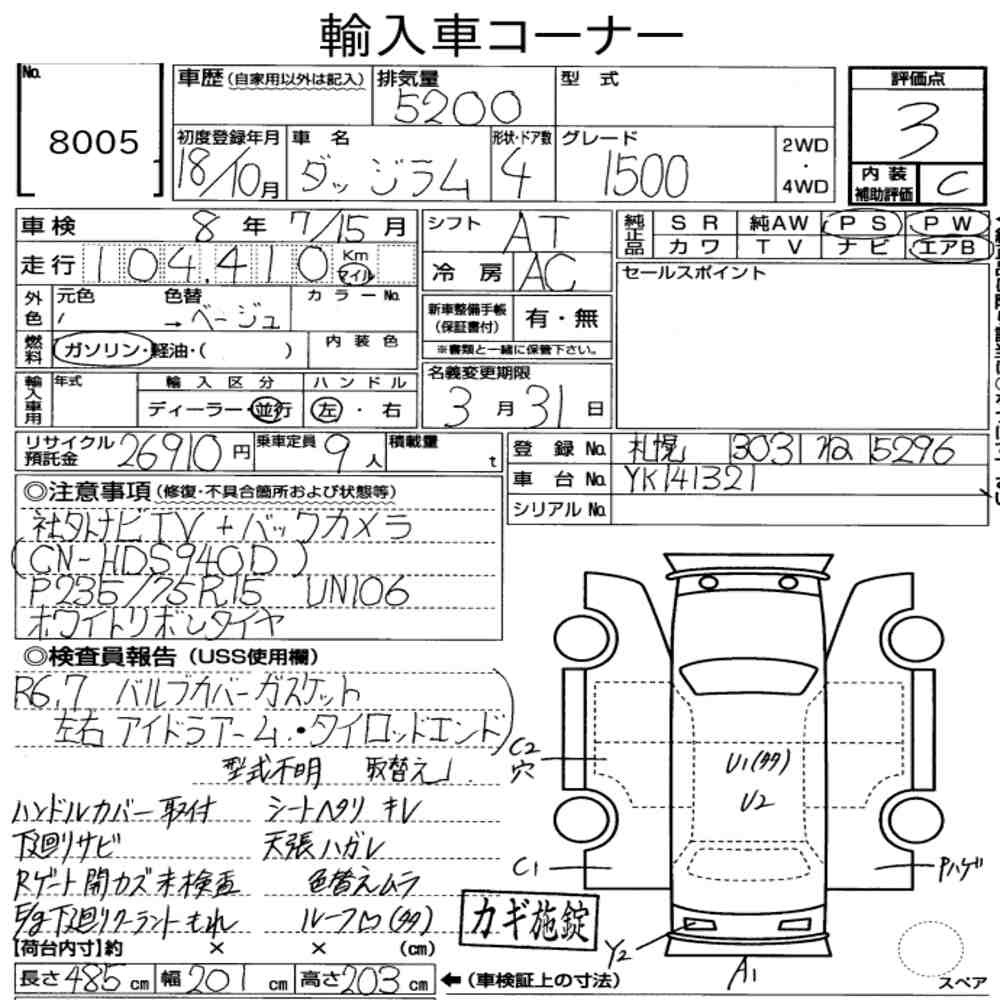 輸入車コーナー
No.
8005
車歴(自家用以外は記入)
排気量
5200
型式
初度登録年月
18/10月
車名
ダッジラム
形状・ドア数
4
グレード
1500
2WD
・
4WD
評価点
3
内装
補助評価
C
車検 8年 7/15月
走行 104,410 Km マイル
外色
元色
色替
→ベージュ
カラーNo.
燃料
ガソリン・軽油・( )
内装色
輸入車用
年式
輸入区分
ディーラー・並行
ハンドル
左・右
シフト
AT
冷房
AC
新車整備手帳
(保証書付)
有・無
※書類と一緒に保管下さい。
名義変更期限
3月31日
純正品
SR 純AW PS PW
カワ TV ナビ エアB
セールスポイント
リサイクル
預託金
26910円
乗車定員
9人
積載量
t
登録No. 札幌 303 ね 5296
車台No. YK141321
シリアルNo.
◎注意事項(修復・不具合箇所および状態等)
社外ナビTV+バックカメラ
(CN-HDS940D)
P235/75R15 UN106
ホワイトリボンタイヤ
◎検査員報告(USS使用欄)
R6,7 バルブカバーガスケット
左右アイドラアーム・タイロッドエンド
型式不明 取替え
ハンドルカバー取付 シートヘタリ キレ
下廻リサビ 天張ハガレ
Rゲート開カズ未検査 色替えムラ
E/g下廻リクーラントもれ ルーフロ(タタ)
【荷台内寸】約 × × (cm)
長さ485cm 幅201cm 高さ203cm
←(車検証上の寸法)
カギ施錠
C2
穴
U1(タタ)
U2
C1
Pハゲ
Y2
A1
スペア